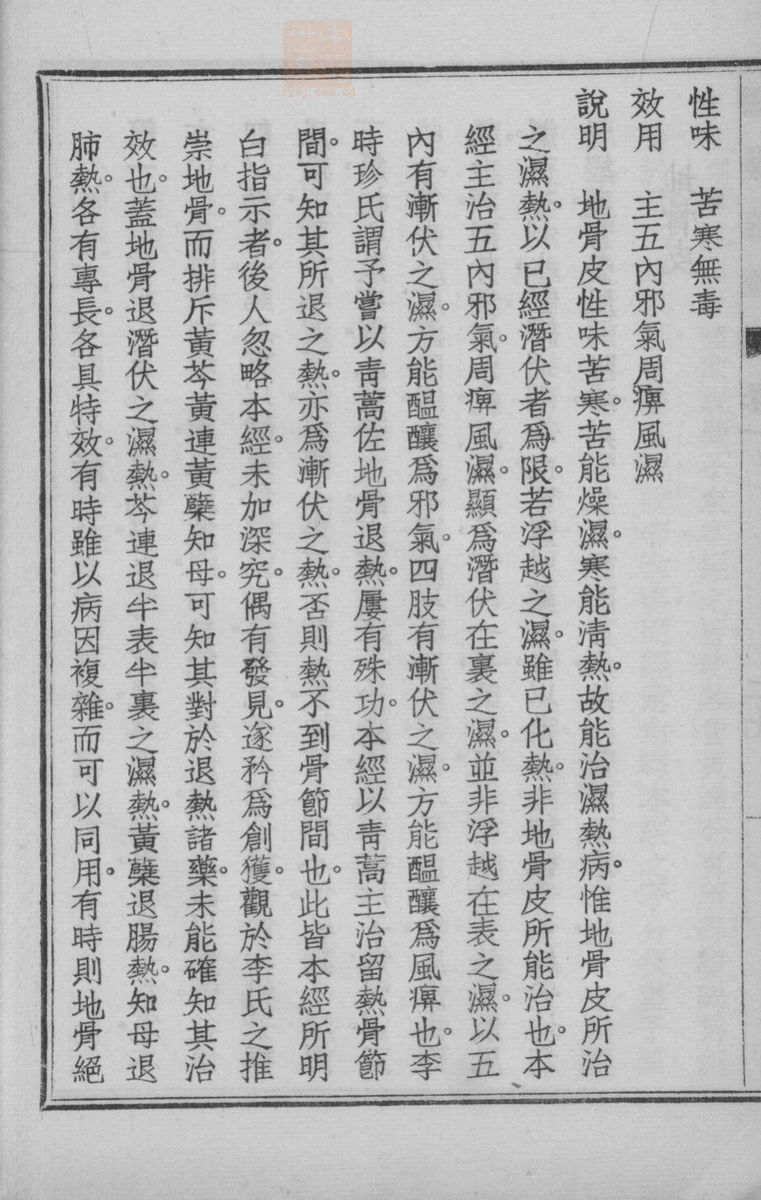 性味　苦寒無毒
效用　主五內邪氣周痹風濕
說明　地骨皮性味苦寒。苦能燥濕。寒能淸熱。故能治濕熱病。惟地骨皮所治
之濕熱。以已經潛伏者爲限。若浮越之濕。雖已化熱。非地骨皮所能治也。本
經主治五內邪氣。周痹風濕。顯爲潛伏在裏之濕。並非浮越在表之濕。以五
內有漸伏之濕。方能醞釀爲邪氣。四肢有漸伏之濕。方能醞釀爲風痹也。李
時珍氏謂予嘗以靑蒿佐地骨退熱。屢有殊功。本經以靑蒿主治留熱骨節
間。可知其所退之熱。亦爲漸伏之熱。否則熱不到骨節間也。此皆本經所明
白指示者。後人忽略本經。未加深究。偶有發見。遂矜爲創獲。觀於李氏之推
崇地骨。而排斥黃芩黃連黃蘗知母。可知其對於退熱諸藥。未能確知其治
效也。蓋地骨退潛伏之濕熱。芩連退半表半裏之濕熱。黃蘗退腸熱。知母退
肺熱。各有專長。各具特效。有時雖以病因複雜。而可以同用。有時則地骨絕